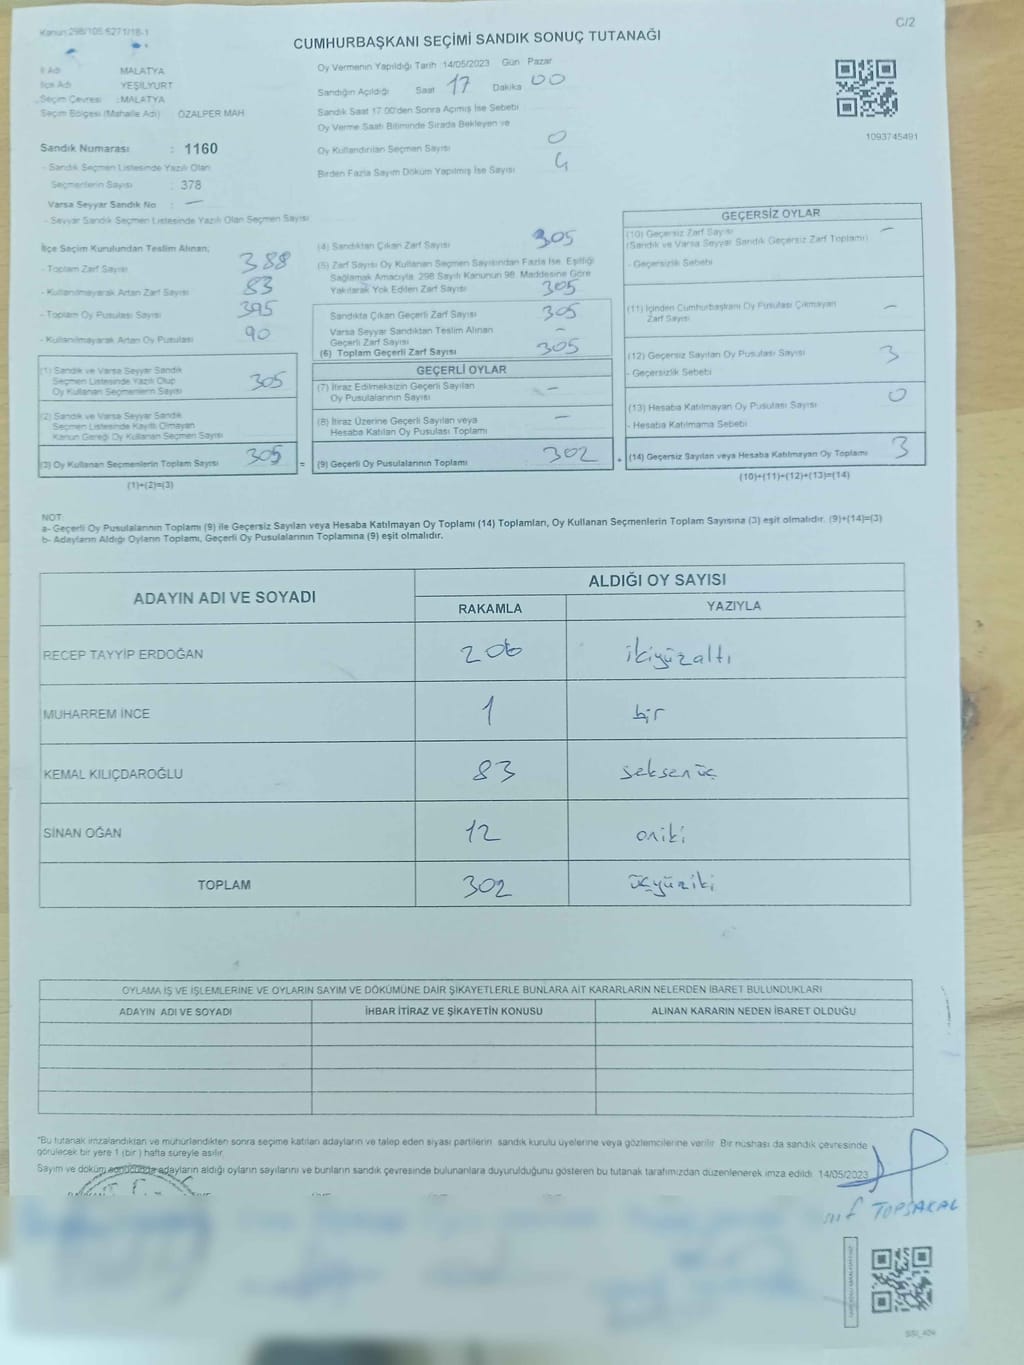 Kanun 298/105 6271/18-1
C/2
CUMHURBAŞKANI SEÇİMİ SANDIK SONUÇ TUTANAĞI
İl Adı MALATYA
İlçe Adı YEŞİLYURT
Seçim Çevresi : MALATYA
Seçim Bölgesi (Mahalle Adı) ÖZALPER MAH
Sandık Numarası : 1160
- Sandık Seçmen Listesinde Yazılı Olan
Seçmenlerin Sayısı : 378
Varsa Seyyar Sandık No : —
- Seyyar Sandık Seçmen Listesinde Yazılı Olan Seçmen Sayısı
Oy Vermenin Yapıldığı Tarih 14/05/2023 Gün Pazar
Sandığın Açıldığı Saat 17 Dakika 00
Sandık Saat 17.00'den Sonra Açımış İse Sebebi
Oy Verme Saati Bitiminde Sırada Bekleyen ve
Oy Kullandırılan Seçmen Sayısı 0
Birden Fazla Sayım Döküm Yapılmış İse Sayısı
1093745491
İlçe Seçim Kurulundan Teslim Alınan;
- Toplam Zarf Sayısı 388
- Kullanılmayarak Artan Zarf Sayısı 83
- Toplam Oy Pusulası Sayısı 395
- Kullanılmayarak Artan Oy Pusulası 90
(1) Sandık ve Varsa Seyyar Sandık
Seçmen Listesinde Yazılı Olup
Oy Kullanan Seçmenlerin Sayısı 305
(2) Sandık ve Varsa Seyyar Sandık
Seçmen Listesinde Kayıtlı Olmayan
Kanun Gereği Oy Kullanan Seçmen Sayısı
(3) Oy Kullanan Seçmenlerin Toplam Sayısı 305
(1)+(2)=(3)
(4) Sandıktan Çıkan Zarf Sayısı 305
(5) Zarf Sayısı Oy Kullanan Seçmen Sayısından Fazla İse, Eşitliği
Sağlamak Amacıyla, 298 Sayılı Kanunun 98. Maddesine Göre
Yakılarak Yok Edilen Zarf Sayısı 305
Sandıkta Çıkan Geçerli Zarf Sayısı 305
Varsa Seyyar Sandıktan Teslim Alınan
Geçerli Zarf Sayısı –
(6) Toplam Geçerli Zarf Sayısı 305
GEÇERLİ OYLAR
(7) İtiraz Edilmeksizin Geçerli Sayılan
Oy Pusulalarının Sayısı —
(8) İtiraz Üzerine Geçerli Sayılan veya
Hesaba Katılan Oy Pusulası Toplamı —
= (9) Geçerli Oy Pusulalarının Toplamı 302
GEÇERSİZ OYLAR
(10) Geçersiz Zarf Sayısı –
(Sandık ve Varsa Seyyar Sandık Geçersiz Zarf Toplamı)
- Geçersizlik Sebebi
(11) İçinden Cumhurbaşkanı Oy Pusulası Çıkmayan
Zarf Sayısı –
(12) Geçersiz Sayılan Oy Pusulası Sayısı 3
- Geçersizlik Sebebi
(13) Hesaba Katılmayan Oy Pusulası Sayısı 0
- Hesaba Katılmama Sebebi
+ (14) Geçersiz Sayılan veya Hesaba Katılmayan Oy Toplamı 3
(10)+(11)+(12)+(13)=(14)
NOT:
a- Geçerli Oy Pusulalarının Toplamı (9) ile Geçersiz Sayılan veya Hesaba Katılmayan Oy Toplamı (14) Toplamları, Oy Kullanan Seçmenlerin Toplam Sayısına (3) eşit olmalıdır. (9)+(14)=(3)
b- Adayların Aldığı Oyların Toplamı, Geçerli Oy Pusulalarının Toplamına (9) eşit olmalıdır.
ADAYIN ADI VE SOYADI
ALDIĞI OY SAYISI
RAKAMLA YAZIYLA
RECEP TAYYİP ERDOĞAN 206 ikiyüzaltı
MUHARREM İNCE 1 bir
KEMAL KILIÇDAROĞLU 83 seksenüç
SİNAN OĞAN 12 oniki
TOPLAM 302 üçyüziki
OYLAMA İŞ VE İŞLEMLERİNE VE OYLARIN SAYIM VE DÖKÜMÜNE DAİR ŞİKAYETLERLE BUNLARA AİT KARARLARIN NELERDEN İBARET BULUNDUKLARI
ADAYIN ADI VE SOYADI İHBAR İTİRAZ VE ŞİKAYETİN KONUSU ALINAN KARARIN NEDEN İBARET OLDUĞU
"Bu tutanak imzalandıktan ve mühürlendikten sonra seçime katılan adayların ve talep eden siyasi partilerin sandık kurulu üyelerine veya gözlemcilerine verilir. Bir nüshası da sandık çevresinde
görülecek bir yere 1 (bir ) hafta süreyle asılır.
Sayım ve döküm sonucunda adayların aldığı oyların sayılarını ve bunların sandık çevresinde bulunanlara duyurulduğunu gösteren bu tutanak tarafımızdan düzenlenerek imza edildi 14/05/2023
TOPSAKAL